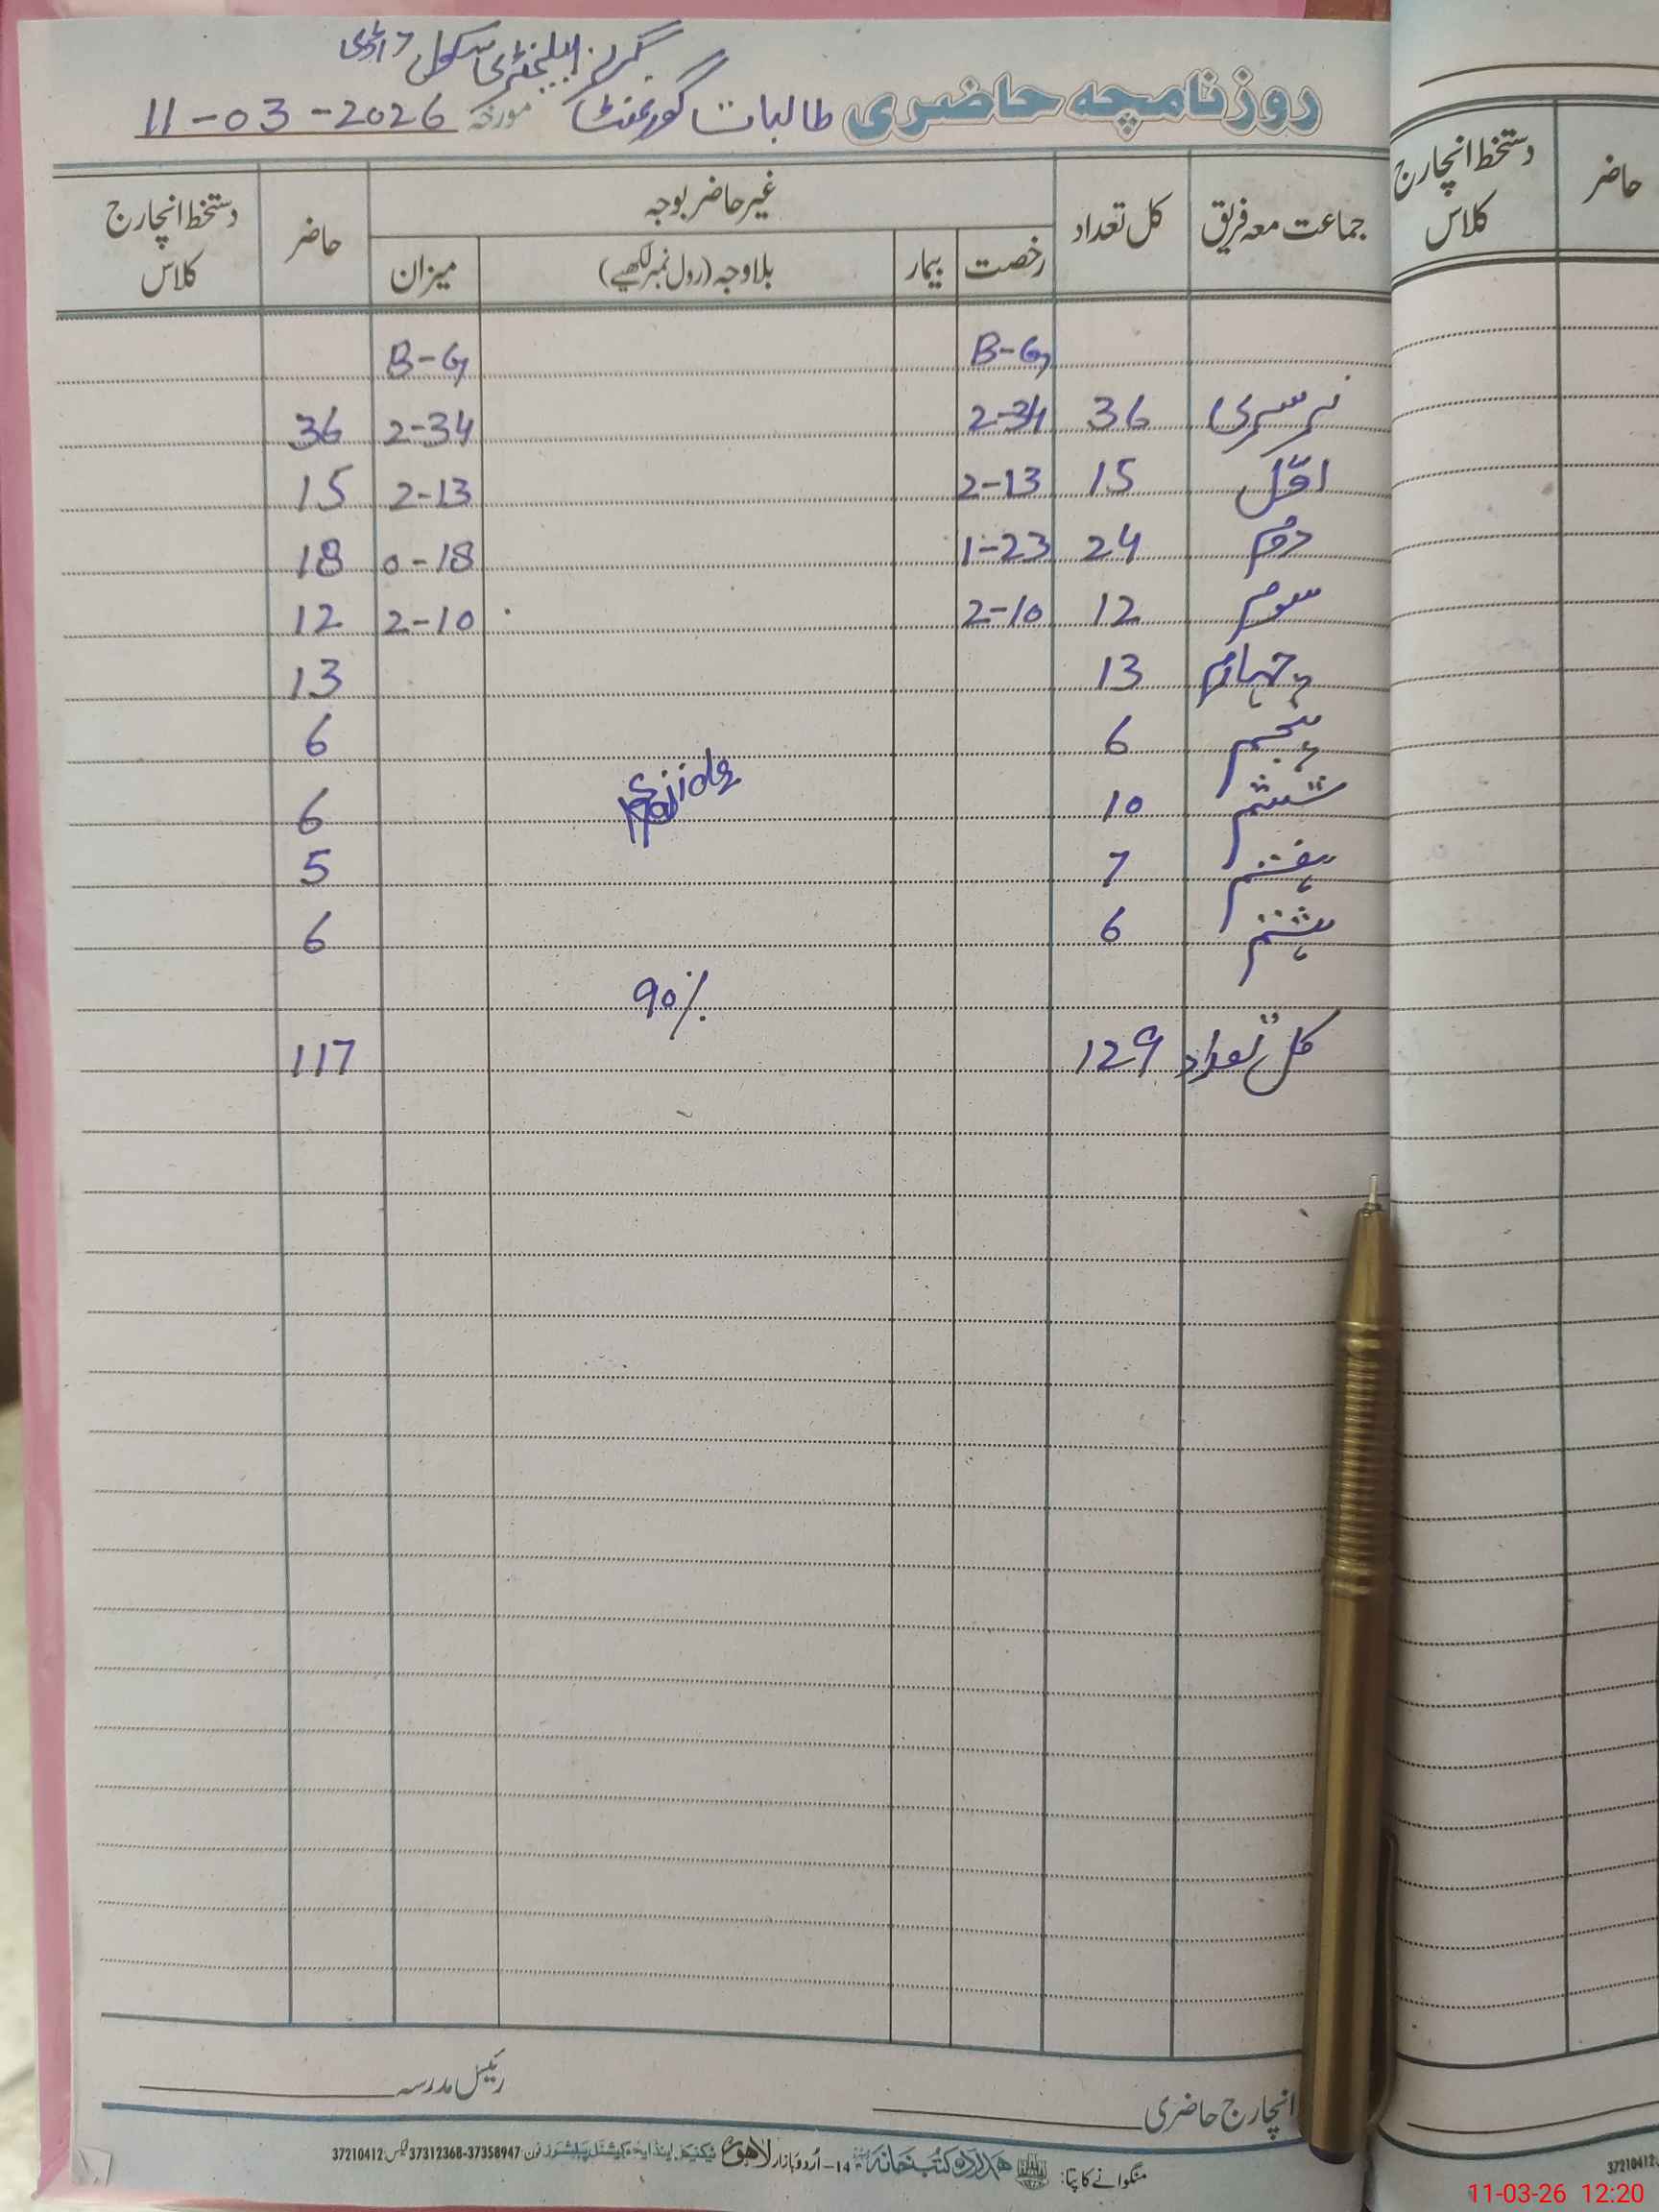 گرلز ایلیمنٹری سکول
روزنامچہ حاضری طالبات گورنمنٹ مورخہ 11-03-2026
جماعت معہ فریق کل تعداد غیر حاضر بوجہ حاضر دستخط انچارج کلاس
رخصت بیمار بلاوجہ (رول نمبر لکھیے) میزان
B-G B-G
نرسری 36 2-34 2-34 36
اوّل 15 2-13 2-13 15
دوم 24 1-23 0-18 18
سوم 12 2-10 2-10 12
چہارم 13 13
پنجم 6 6
ششم 10 6
ہفتم 7 5
ہشتم 6 6
90%
کل تعداد 129 117
انچارج حاضری رئیس مدرسہ
منگوانے کا پتا: ہمدرد کتب خانہ 14-اُردو بازار لاہور ٹیکنیکل اینڈ ایجوکیشنل پبلشرز فون 37358947-37312368 فیکس: 37210412
حاضر دستخط انچارج کلاس
37210412
11-03-26 12:20